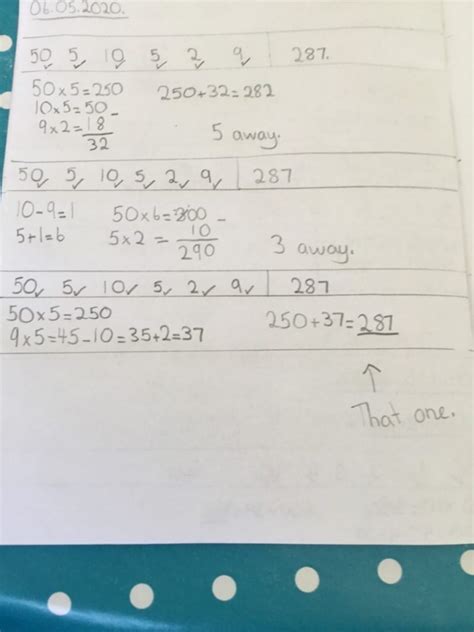 06.05.2020.
50 5 10 5 2 9 287.
50×5=250 250+32=282
10×5=50 –
9×2=18
32
5 away.
50 5 10 5 2 9 287
10-9=1 50×6=300 –
5+1=6 5×2=10
290
3 away.
50 5 10 5 2 9 287
50×5=250
9×5=45-10=35+2=37 250+37=287
↑
That one.